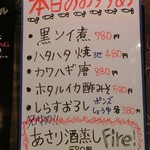 本日のおすすめ
・黒ソイ煮 780円
・ハタハタ焼 480円
・カワハギ唐 780円
・ホタルイカ酢みそ 580円
・しらすおろし ポンズ しょうゆ 各380円
あさり酒蒸し Fire!
580円